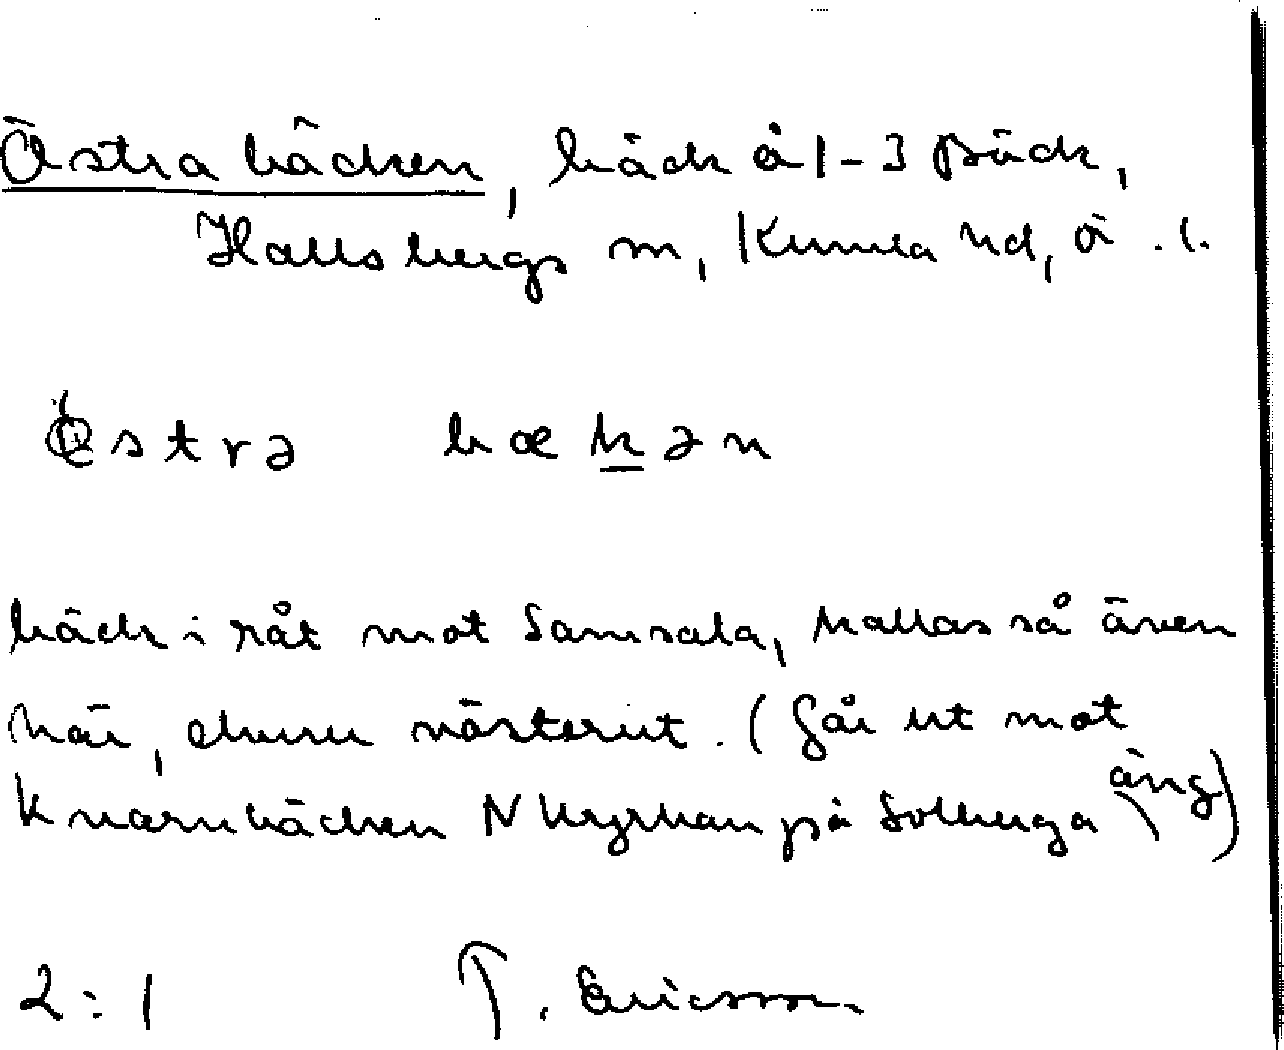 Östra bäcken, bäck å 1-3 Bäck,
Hallsbergs sn, Kumla hd, Ö.l.
Östrə bækən
bäck i råt mot Samsala, kallas så även
här, ehuru västerut. (Går ut mot
Kvarnbäcken N kyrkan på Solberga äng)
2:1 T. Ericsson